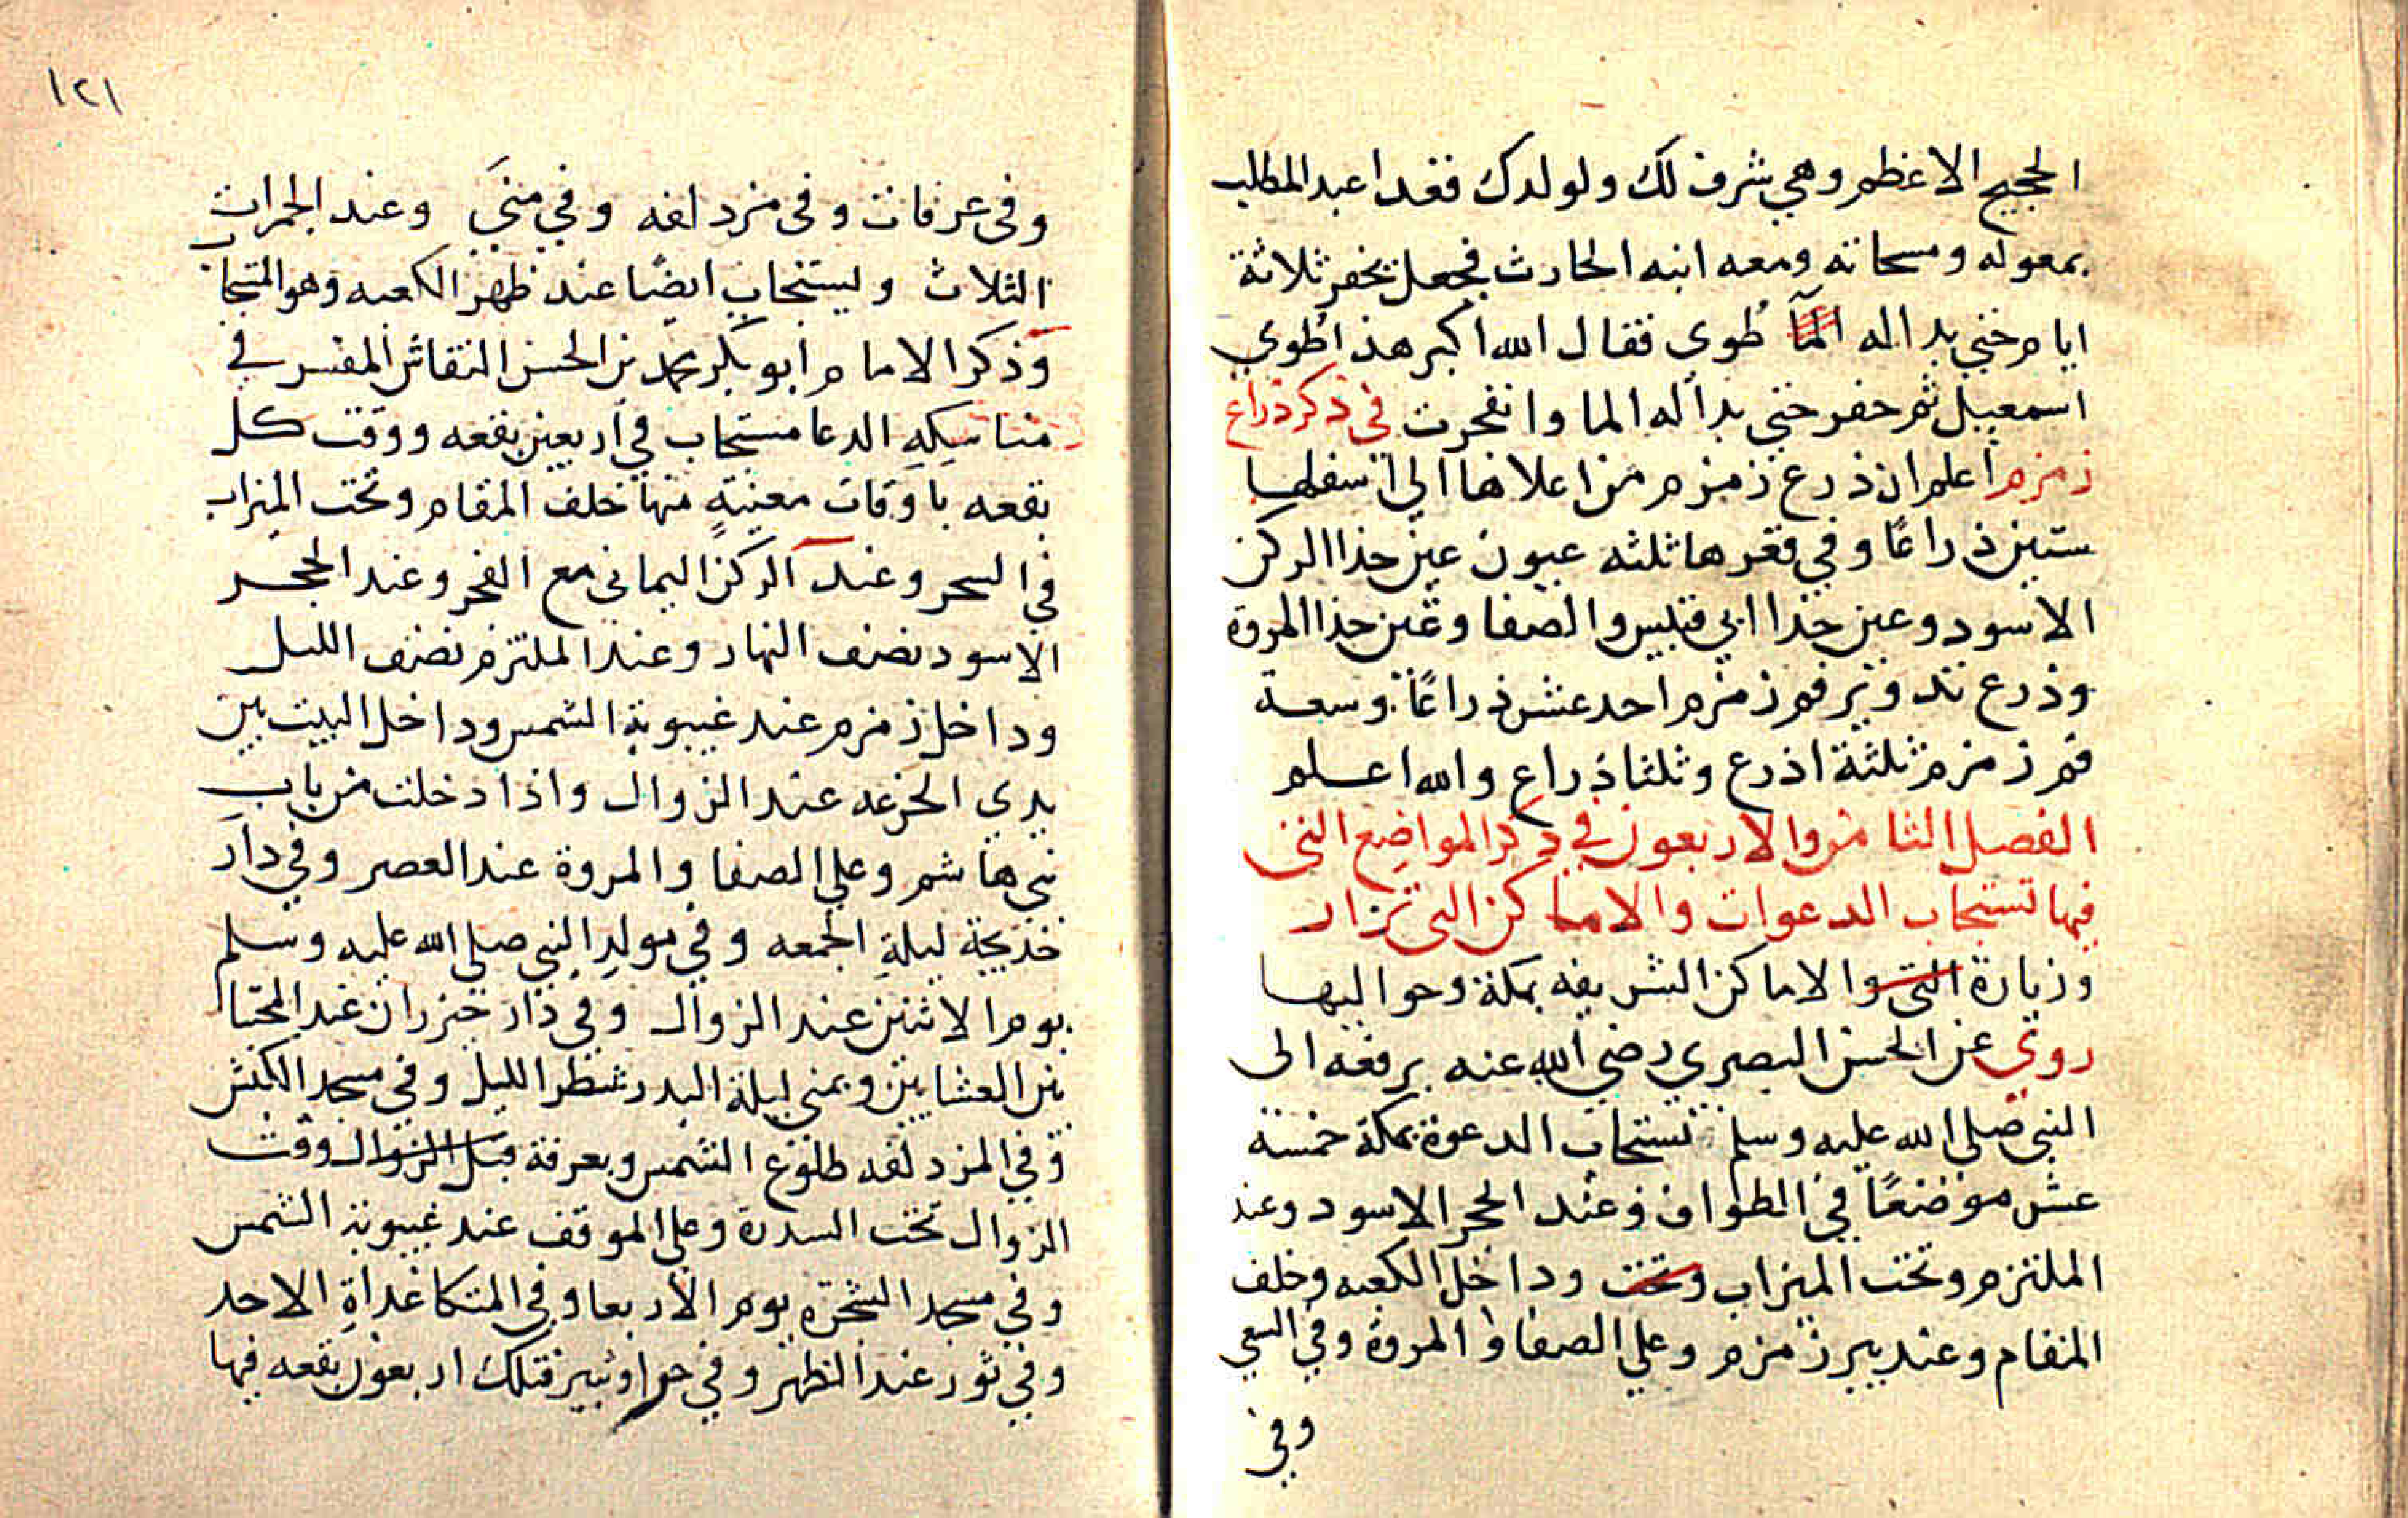 الحجيج الاعظم وهي شرف لك ولولدك فغدا عبد المطلب
بمعوله ومسحاته ومعه ابنه الحارث فجعل يحفر ثلاثة
ايام حتي بدا له الما طوي فقال الله اكبر هذا طوي
اسمعيل ثم حفر حتي بدا له الما وانفجرت في ذكر ذراع
زمزم اعلم ان ذرع زمزم من اعلاها الي اسفلها
ستين ذراعًا وفي قعرها ثلثه عيون عين حذا الركن
الاسود وعين حذا ابي قبيس والصفا وعين حذا المروة
وذرع تدوير فم زمزم احد عشر ذراعًا وسعة
فم زمزم ثلثة اذرع وثلثا ذراع والله اعلم
الفصل الثامن والاربعون في ذكر المواضع التي
فيها تستجاب الدعوات والاماكن التي تزار
وزيارة التي والاماكن الشريفه بمكة وحواليها
روي عن الحسن البصري رضي الله عنه يرفعه الى
النبي صلي الله عليه وسلم تستجاب الدعوة بمكة خمسة
عشر موضعًا في الطواف وعند الحجر الاسود وعند
الملتزم وتحت الميزاب وتحت وداخل الكعبه وخلف
المقام وعند بير زمزم وعلي الصفا والمروة وفي السعي
وفي
١٢١
وفي عرفات وفي مزدلفه وفي منىً وعند الجمرات
الثلاث ويستجاب ايضًا عند ظهر الكعبه وهو المستجاب
وذكر الامام ابو بكر محمد بن الحسن النقاش المفسر في
مناسكه الدعا مستجاب في اربعين بقعه ووقت كل
بقعه باوقات معينةٍ منها خلف المقام وتحت الميزاب
في السحر وعند الركن اليماني مع الفجر وعند الحجر
الاسود نصف النهار وعند الملتزم نصف الليل
وداخل زمزم عند غيبوبة الشمس وداخل البيت بين
يدي الجزعه عند الزوال واذا دخلت من باب
بني هاشم وعلي الصفا والمروة عند العصر وفي دار
خديجة ليلة الجمعه وفي مولد النبي صلي الله عليه وسلم
يوم الاثنين عند الزوال وفي دار خيزران عند المختبا
بين العشاين وبمنى ليلة البدر شطر الليل وفي مسجد الكبش
وفي المزدلفه طلوع الشمس وبعرفة قبل الزوال وقت
الزوال تحت السدرة وعلي الموقف عند غيبوبة الشمس
وفي مسجد الشجره يوم الاربعا وفي المتكا غداة الاحد
وفي ثور عند الظهر وفي حرا وثبير فتلك اربعون بقعه فيها